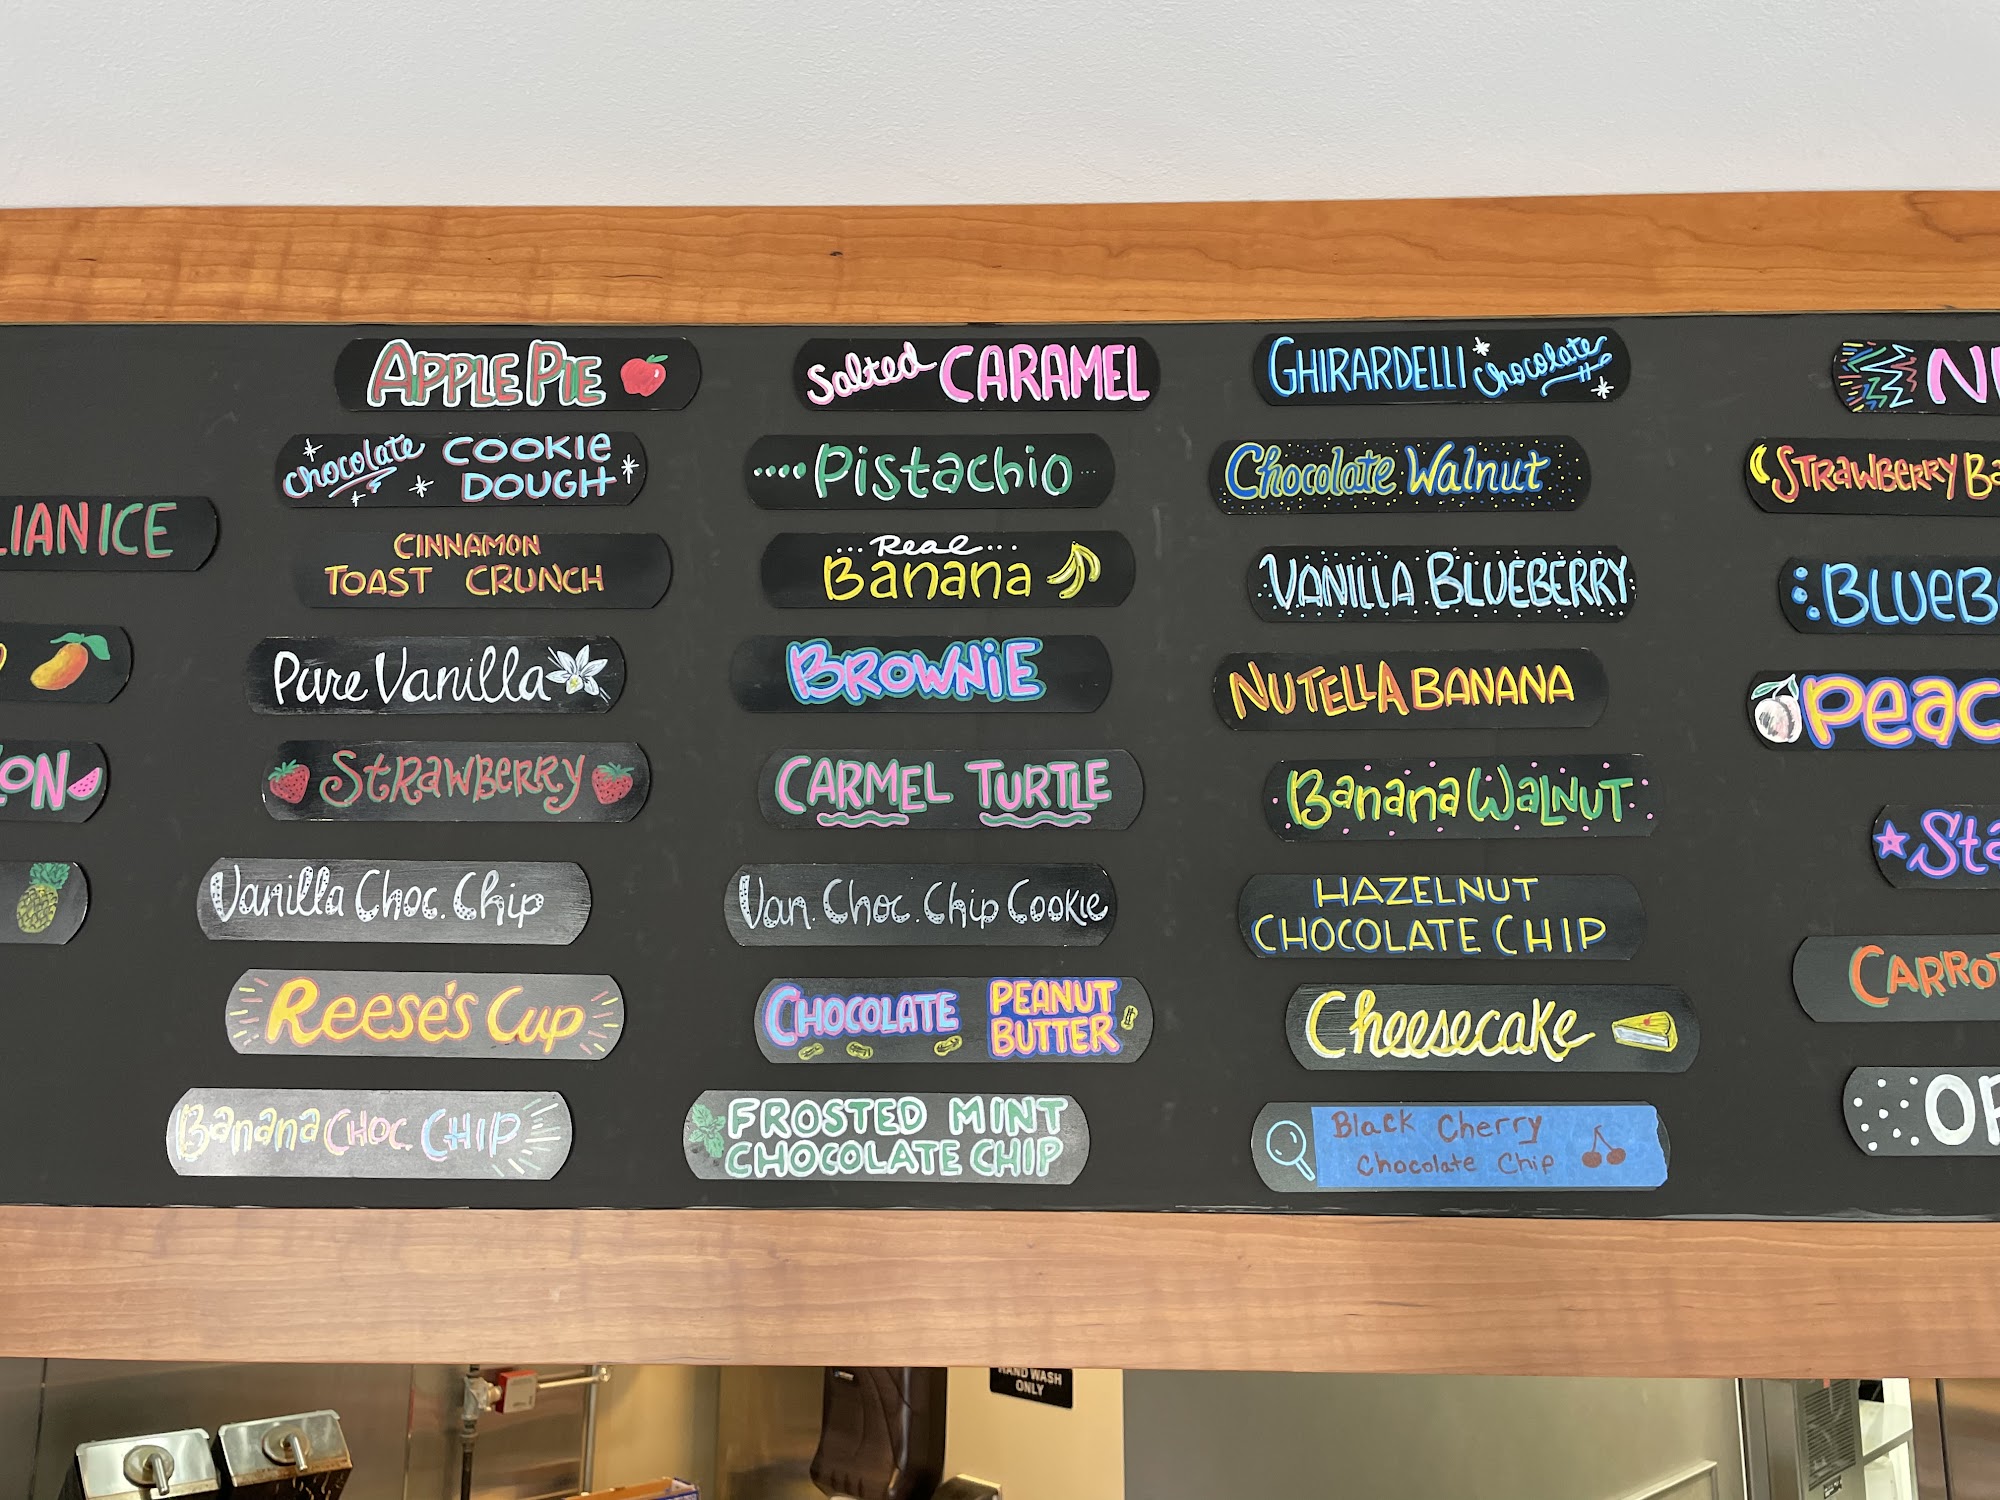 LIAN ICE
ON
APPLE PIE
chocolate COOKIE
DOUGH
CINNAMON
TOAST CRUNCH
Pure Vanilla
STRAWBERRY
Vanilla Choc. Chip
Reese's Cup
Banana CHOC. CHIP
Salted CARAMEL
Pistachio
...Real...
Banana
BROWNIE
CARMEL TURTLE
Van. Choc. Chip Cookie
CHOCOLATE PEANUT
BUTTER
FROSTED MINT
CHOCOLATE CHIP
GHIRARDELLI chocolate
Chocolate Walnut
VANILLA BLUEBERRY
NUTELLA BANANA
Banana WALNUT
HAZELNUT
CHOCOLATE CHIP
Cheesecake
Black Cherry
Chocolate Chip
STRAWBERRY Ba
BLUEB
Peac
Sta
CARROT
HAND WASH
ONLY